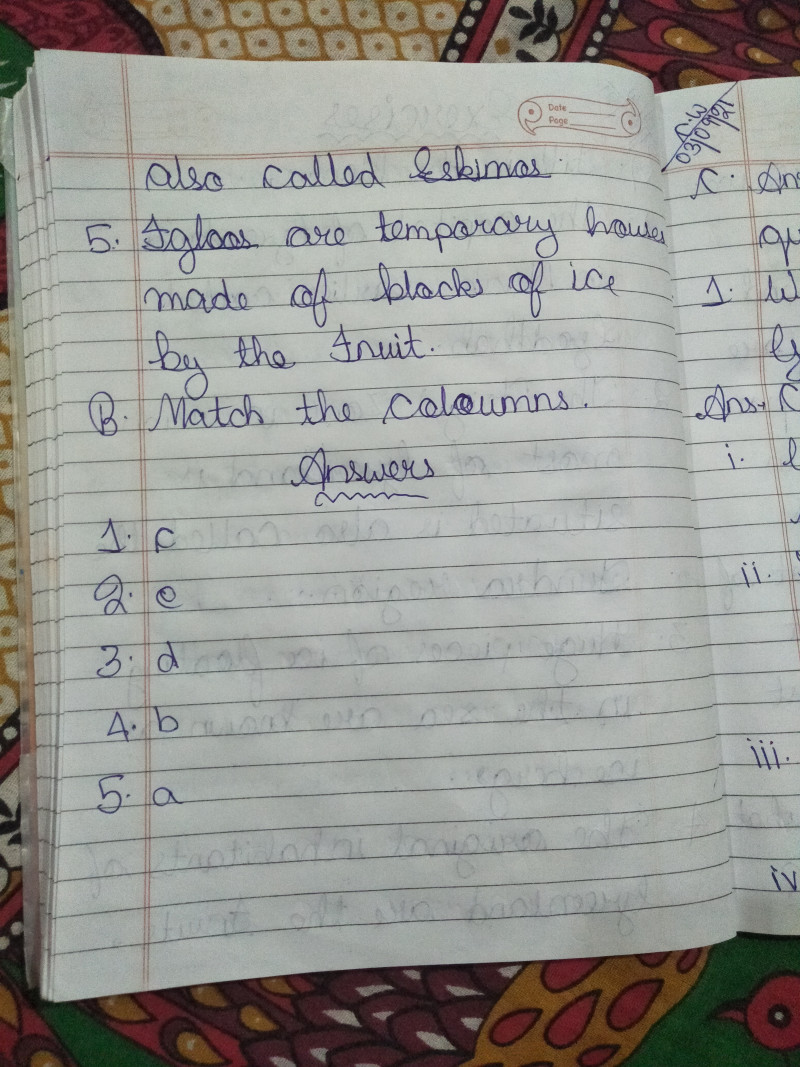 Date
Page
also called Eskimos.
5. Igloos are temporary houses
made of blocks of ice
by the Inuit.
B. Match the coloumns.
Answers
1. c
2. e
3. d
4. b
5. a
C.W
03/09/21
C. Ans
qu
1. W
Ans→
i.
ii.
iii.
iv